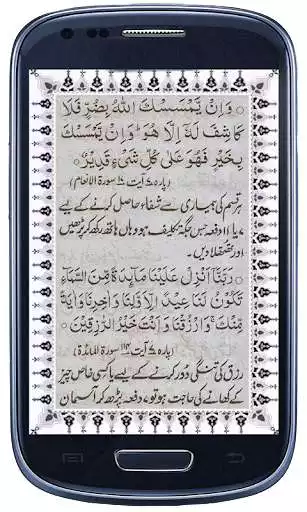 وَاِنْ يَّمْسَسْكَ اللّٰهُ بِضُرٍّ فَلَا
كَاشِفَ لَهٗۤ اِلَّا هُوَ ؕ وَاِنْ يَّمْسَسْكَ
بِخَيْرٍ فَهُوَ عَلٰى كُلِّ شَىْءٍ قَدِيْرٌ
(پارہ ۷ آیت ۱۷ سورۃ الانعام)
ہر قسم کی بیماری سے شفاء حاصل کرنے کے لیے
۷ یا ۱۱ دفعہ جس جگہ تکلیف ہو وہاں ہاتھ رکھ کر پڑھیں
اور
رَبَّنَاۤ اَنْزِلْ عَلَيْنَا مَآئِدَةً مِّنَ السَّمَآءِ
تَكُوْنُ لَنَا عِيْدًا لِّاَوَّلِنَا وَاٰخِرِنَا وَاٰيَةً
مِّنْكَ ۚ وَارْزُقْنَا وَاَنْتَ خَيْرُ الرّٰزِقِيْنَ
(پارہ ۷ آیت ۱۱۴ سورۃ المائدۃ)
رزق کی تنگی دُور کرنے کے لیے یا کسی خاص چیز
کے کھانے کی حاجت ہو تو ۷ دفعہ پڑھ کر آسمان